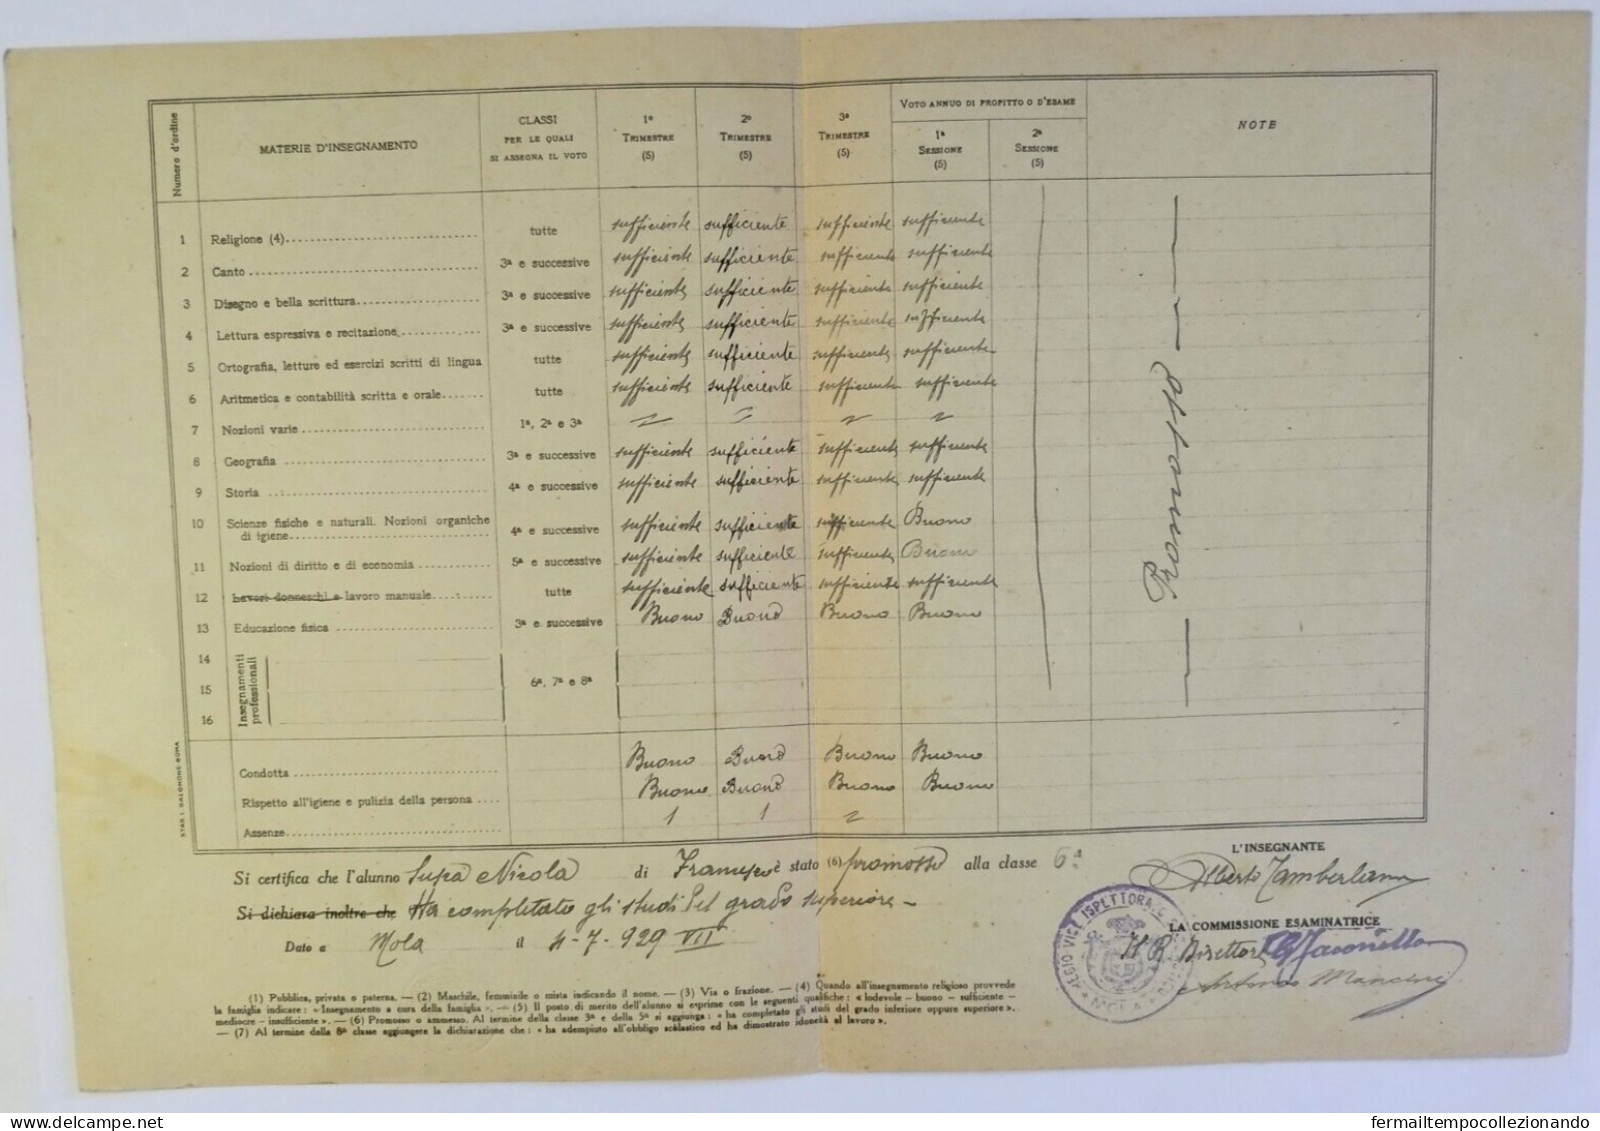 Numero d'ordine
MATERIE D'INSEGNAMENTO
CLASSI
PER LE QUALI
SI ASSEGNA IL VOTO
1º
TRIMESTRE
(5)
2º
TRIMESTRE
(5)
3º
TRIMESTRE
(5)
VOTO ANNUO DI PROFITTO O D'ESAME
1ª
SESSIONE
(5)
2ª
SESSIONE
(5)
NOTE
1 Religione (4) tutte sufficiente sufficiente sufficiente sufficiente
2 Canto 3ª e successive sufficiente sufficiente sufficiente sufficiente
3 Disegno e bella scrittura 3ª e successive sufficiente sufficiente sufficiente sufficiente
4 Lettura espressiva e recitazione 3ª e successive sufficiente sufficiente sufficiente sufficiente
5 Ortografia, letture ed esercizi scritti di lingua tutte sufficiente sufficiente sufficiente sufficiente
6 Aritmetica e contabilità scritta e orale tutte sufficiente sufficiente sufficiente sufficiente
7 Nozioni varie 1ª, 2ª e 3ª
8 Geografia 3ª e successive sufficiente sufficiente sufficiente sufficiente
9 Storia 4ª e successive sufficiente sufficiente sufficiente sufficiente
10 Scienze fisiche e naturali. Nozioni organiche
di igiene 4ª e successive sufficiente sufficiente sufficiente Buono
11 Nozioni di diritto e di economia 5ª e successive sufficiente sufficiente sufficiente Buono
12 Lavori donneschi e lavoro manuale tutte sufficiente sufficiente sufficiente sufficiente
13 Educazione fisica 3ª e successive Buono Buono Buono Buono
14
15
16
Insegnamenti professionali
6ª, 7ª e 8ª
Promosso
Condotta Buono Buono Buono Buono
Rispetto all'igiene e pulizia della persona Buono Buono Buono Buono
Assenze 1 1 2
STAB. L. SALOMONE-ROMA
Si certifica che l'alunno Nicola di Francesco è stato (6) promosso alla classe 6ª
Si dichiara inoltre che Ha completato gli studi del grado superiore
Dato a Mola il 4-7-929 VII
L'INSEGNANTE
Alberto Tamberlani
LA COMMISSIONE ESAMINATRICE
Il R. Direttore
Antonio Mancini
(1) Pubblica, privata o paterna. — (2) Maschile, femminile o mista indicando il nome. — (3) Via o frazione. — (4) Quando all'insegnamento religioso provvede
la famiglia indicare: «Insegnamento a cura della famiglia». — (5) Il posto di merito dell'alunno si esprime con le seguenti qualifiche: « lodevole – buono – sufficiente –
mediocre – insufficiente ». — (6) Promosso o ammesso. Al termine della classe 3ª e della 5ª si aggiunga: « ha completato gli studi del grado inferiore oppure superiore ».
— (7) Al termine della 8ª classe aggiungere la dichiarazione che: « ha adempiuto all'obbligo scolastico ed ha dimostrato idoneità al lavoro ».
fermailtempocollezionando